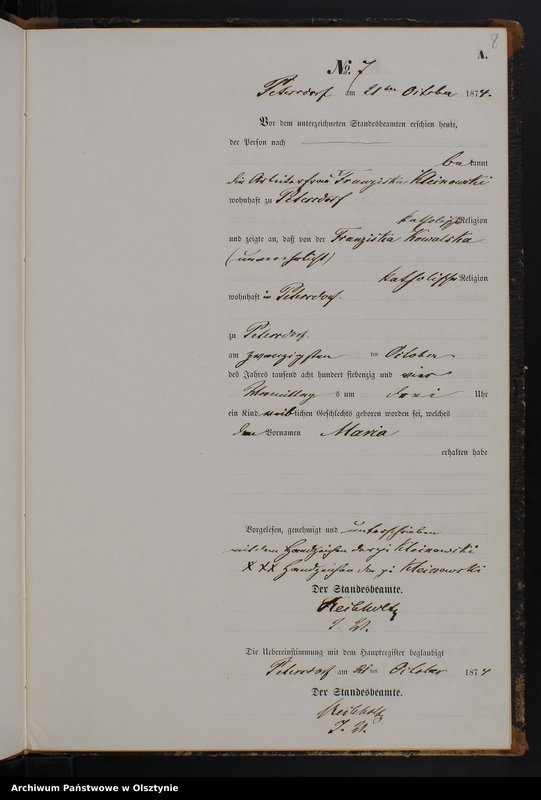 8
A.
No. 7
Petersdorf am 21ten October 1874.
Vor dem unterzeichneten Standesbeamten erschien heute,
der Person nach
be kannt
die Arbeiterfrau Franziska Kleinowski
wohnhaft zu Petersdorf
katholischer Religion
und zeigte an, daß von der Franziska Kowalska
(unverehelicht)
katholischer Religion
wohnhaft in Petersdorf.
zu Petersdorf.
am zwanzigsten ten October
des Jahres tausend acht hundert siebenzig und vier
Vormittag s um drei Uhr
ein Kind weiblichen Geschlechts geboren worden sei, welches
den Vornamen Maria
erhalten habe
Vorgelesen, genehmigt und unterschrieben
mit dem Handzeichen der pp Kleinowski
X XX Handzeichen der pp Kleinowski
Der Standesbeamte.
Reibholtz
Die Uebereinstimmung mit dem Hauptregister beglaubigt
Petersdorf am 21ten October 1874
Der Standesbeamte.
Reibholtz
Archiwum Państwowe w Olsztynie